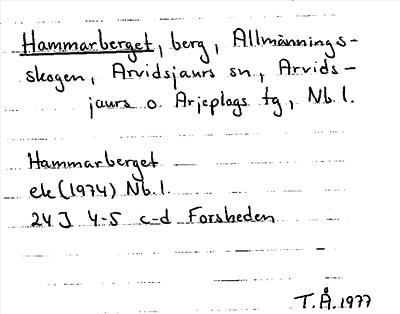 Hammarberget, berg, Allmännings-
skogen, Arvidsjaurs sn, Arvids-
jaurs o. Arjeplogs tg, Nb. l.
Hammarberget
ek (1974) Nb. l.
24J 4-5 c-d Forsheden
T.Å. 1977